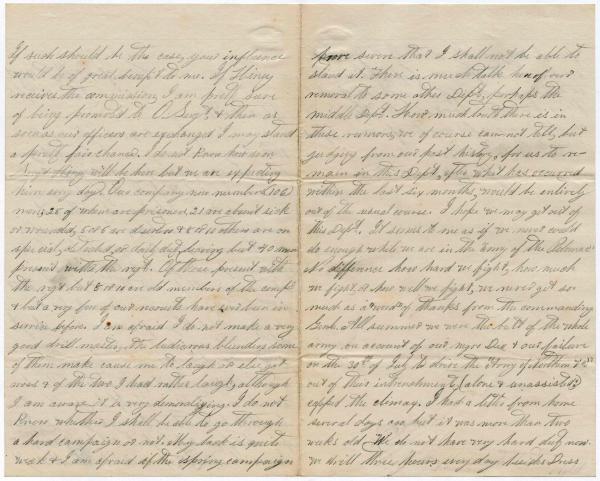 If such should be the case, your influence
would be of great benefit to me. If Henry
receives the commission, I am pretty sure
of being promoted to O. Sergt. & then as
soon as our officers are exchanged I may stand
a pretty fair chance. I do not know how soon
will be here but we are expecting
him every day. Our company now numbers 106
men, 28 of whom are prisoners, 21 are absent sick
or wounded, 5 or 6 are deserters & 8 or 10 others are on
special, detached or daily duty, leaving but 40 men
present with the regt. Of those present with
the regt but 8 or 10 are old members of the comp'y
& but a very few of our recruits have ever been in
service before. I am afraid I do not make a very
good drill master, the ludicrous blunders some
of them make cause me to laugh or else get
cross & of the two I had rather laugh, although
I am aware it is very demoralizing. I do not
know whether I shall be able to go through
a hard campaign or not. My back is quite
weak & I am afraid if the spring campaign
prove severe that I shall not be able to
stand it. There is much talk here of our
removal to some other Dept, perhaps the
middle Dept. How much truth there is in
these rumors, we of course can not tell, but
judging from our past history, for us to re-
main in this Dept, after what has occurred
within the last six months, would be entirely
out of the usual course. I hope we may get out of
this Dept. It seems to me as if we never could
do enough while we are in the Army of the Potomac
No difference how hard we fight, how much
we fight, or how well we fight, we never get so
much as a word of thanks from the commanding
Genl. All summer we were the butt of the whole
army on account of our & our failure
on the 30th of July to drive the Army of Northern Va
out of their intrenchments, alone & unassisted,
capped the climax. I had a letter from home
several days ago but it was more than two
weeks old. We do not have very hard duty now.
we drill three hours every day besides Dress